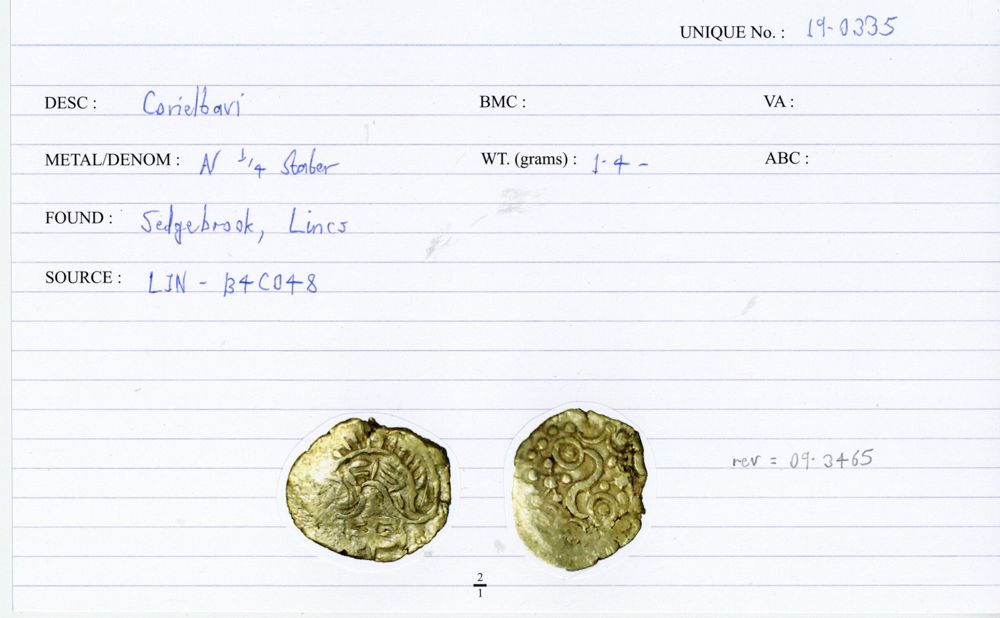 UNIQUE No. : 19-0335
DESC : Corieltavi BMC : VA :
METAL/DENOM : N 1/4 Stater WT. (grams) : 1.4- ABC :
FOUND : Sedgebrook, Lincs
SOURCE : LIN - B4C048
rev = 09.3465
2/1